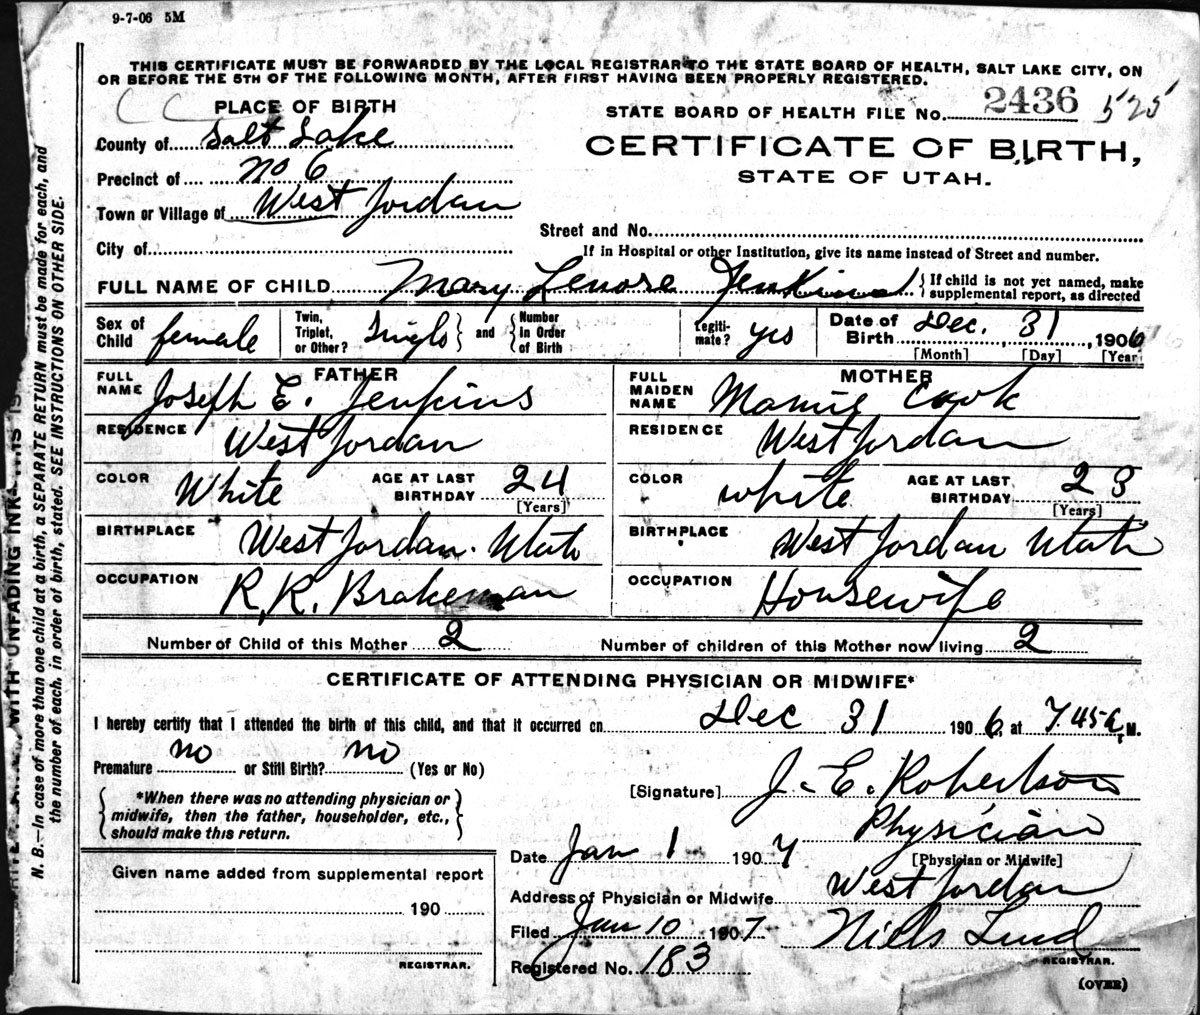 9-7-06 5M
THIS CERTIFICATE MUST BE FORWARDED BY THE LOCAL REGISTRAR TO THE STATE BOARD OF HEALTH, SALT LAKE CITY, ON
OR BEFORE THE 5TH OF THE FOLLOWING MONTH, AFTER FIRST HAVING BEEN PROPERLY REGISTERED.
PLACE OF BIRTH
STATE BOARD OF HEALTH FILE No. 2436 525
County of Salt Lake
CERTIFICATE OF BIRTH,
Precinct of no 6
STATE OF UTAH.
Town or Village of West Jordan
Street and No.
City of
If in Hospital or other Institution, give its name instead of Street and number.
FULL NAME OF CHILD Mary Lenore Jenkins { If child is not yet named, make supplemental report, as directed
Sex of Child female Twin, Triplet, or Other? Single } and { Number in Order of Birth Legiti- mate? yes Date of Birth Dec. 31, 1906
[Month] [Day] [Year
FATHER
FULL NAME Joseph E. Jenkins
RESIDENCE West Jordan
COLOR White AGE AT LAST BIRTHDAY 24
[Years]
BIRTHPLACE West Jordan. Utah
OCCUPATION R.R. Brakeman
MOTHER
FULL MAIDEN NAME Mamie Cook
RESIDENCE West Jordan
COLOR white AGE AT LAST BIRTHDAY 23
[Years]
BIRTHPLACE West Jordan Utah
OCCUPATION Housewife
Number of Child of this Mother 2 Number of children of this Mother now living 2
CERTIFICATE OF ATTENDING PHYSICIAN OR MIDWIFE*
I hereby certify that I attended the birth of this child, and that it occurred on Dec 31 1906, at 7.45 a, M.
Premature no or Still Birth? no (Yes or No)
*When there was no attending physician or
midwife, then the father, householder, etc.,
should make this return.
[Signature] J. E. Robertson
Physician
Date Jan 1 1907
[Physician or Midwife]
Address of Physician or Midwife West Jordan
Filed Jan 10 1907 Niels Lind
REGISTRAR.
Registered No. 183
(OVER)
Given name added from supplemental report
190
REGISTRAR.
WITH UNFADING INK
N. B.—In case of more than one child at a birth, a SEPARATE RETURN must be made for each, and
the number of each, in order of birth, stated. SEE INSTRUCTIONS ON OTHER SIDE.